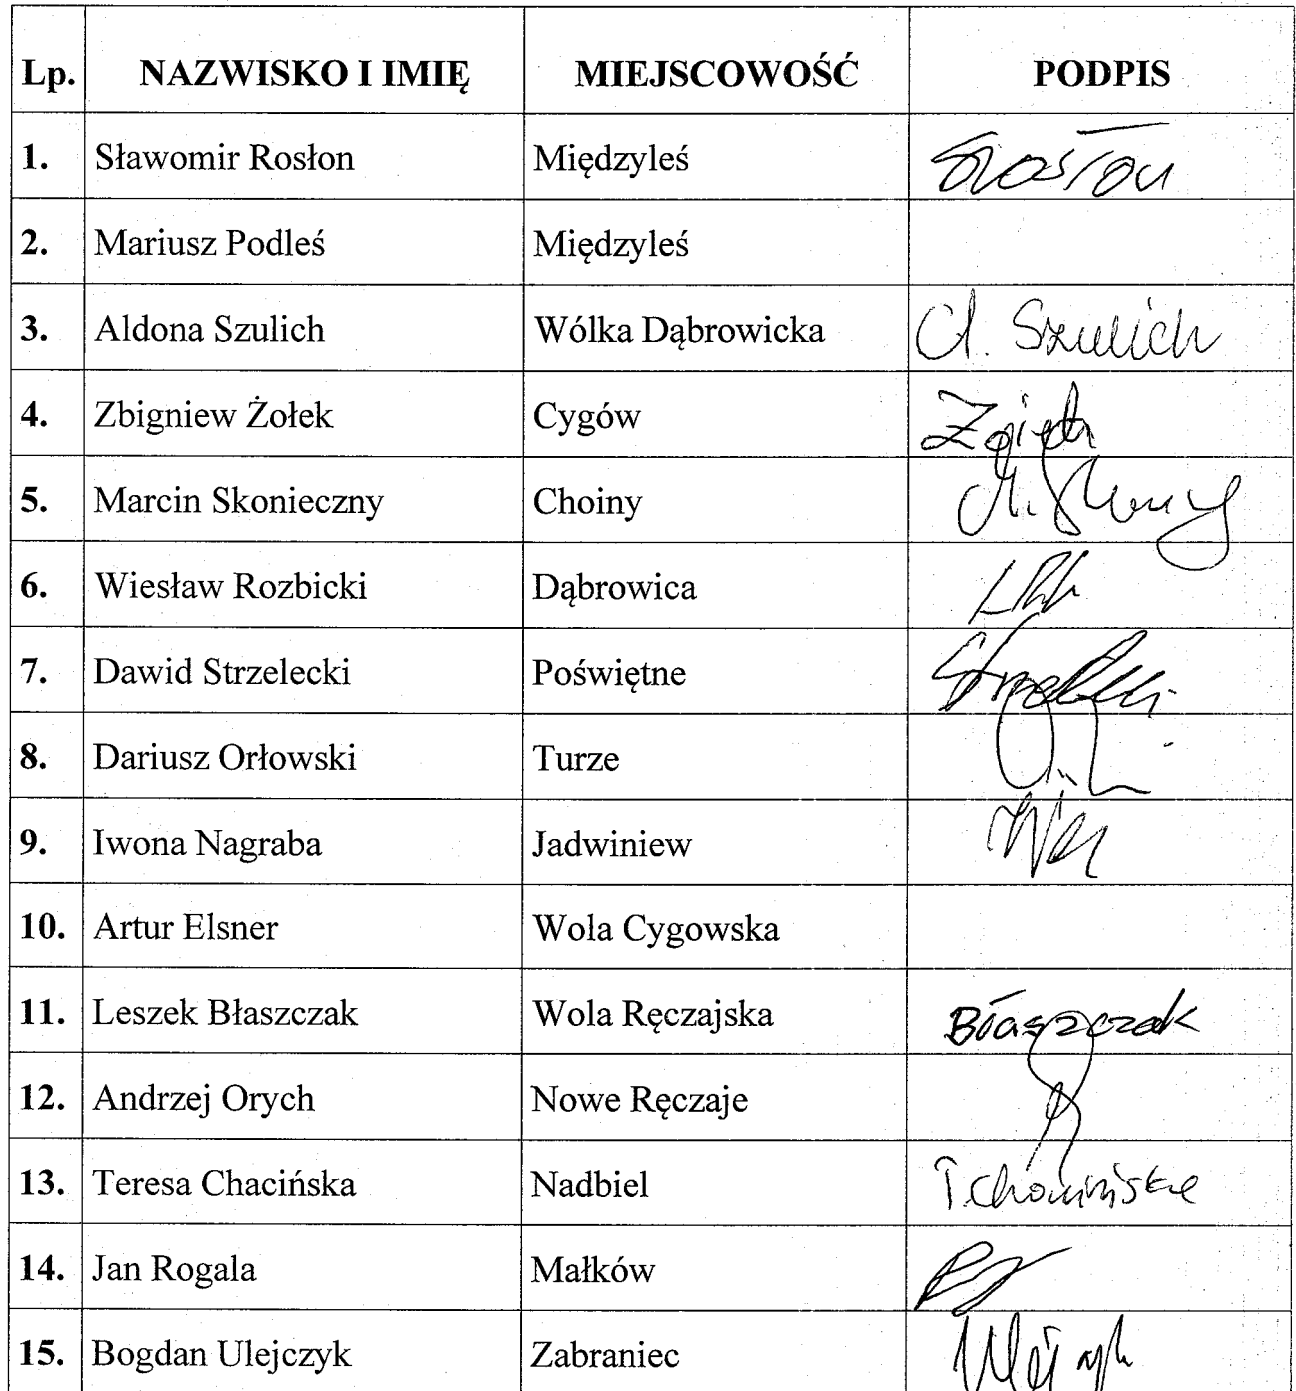 Lp. NAZWISKO I IMIĘ MIEJSCOWOŚĆ PODPIS
1. Sławomir Rosłon Międzyleś Srosłon
2. Mariusz Podleś Międzyleś
3. Aldona Szulich Wólka Dąbrowicka A. Szulich
4. Zbigniew Żołek Cygów
5. Marcin Skonieczny Choiny
6. Wiesław Rozbicki Dąbrowica
7. Dawid Strzelecki Poświętne Strzelecki
8. Dariusz Orłowski Turze
9. Iwona Nagraba Jadwiniew
10. Artur Elsner Wola Cygowska
11. Leszek Błaszczak Wola Ręczajska Błaszczak
12. Andrzej Orych Nowe Ręczaje
13. Teresa Chacińska Nadbiel T. Chacińska
14. Jan Rogala Małków
15. Bogdan Ulejczyk Zabraniec Ulejczyk